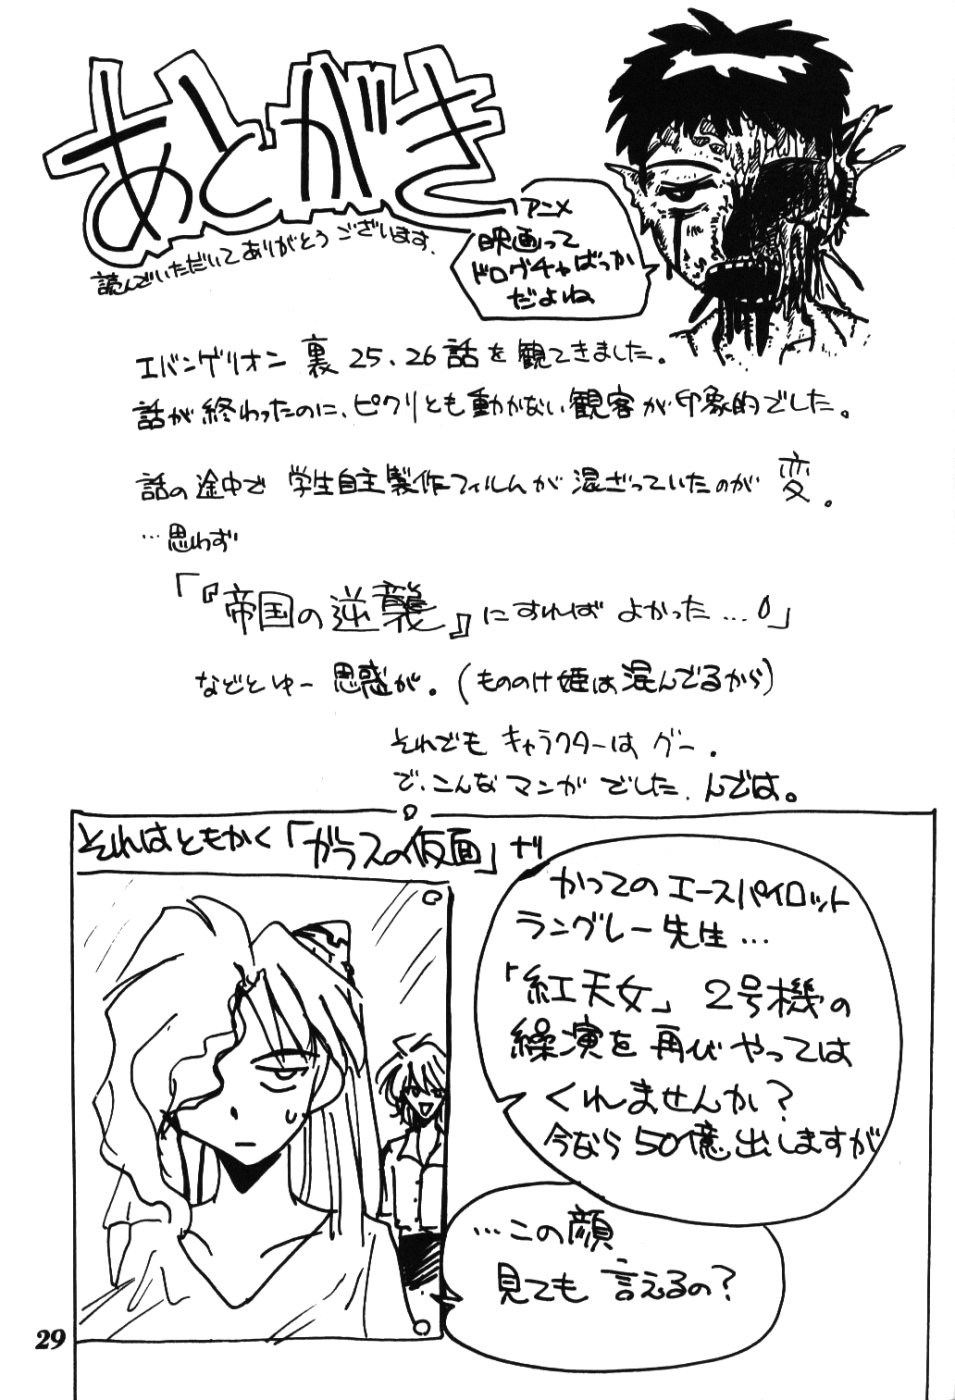 あとがき
読んでいただいてありがとうございます.
アニメ
映画って
ドログチャばっか
だよね
エバンゲリオン 裏 25、26話を観てきました。
話が終わったのに、ピクリとも動かない観客が印象的でした。
話の途中で 学生自主製作フィルムが混ざっていたのが 変。
…思わず
「『帝国の逆襲』にすればよかった…」
などとゆー 思惑が。(もののけ姫は混んでるから)
それでも キャラクターは グー.
で、こんな マンガ でした. んでは。
それはともかく「ガラスの仮面」ナリ
かつてのエースパイロット
ラングレー先生…
「紅天女」2号機の
操演を再びやっては
くれませんか?
今なら50億出しますが
…この顔
見ても言えるの?
29